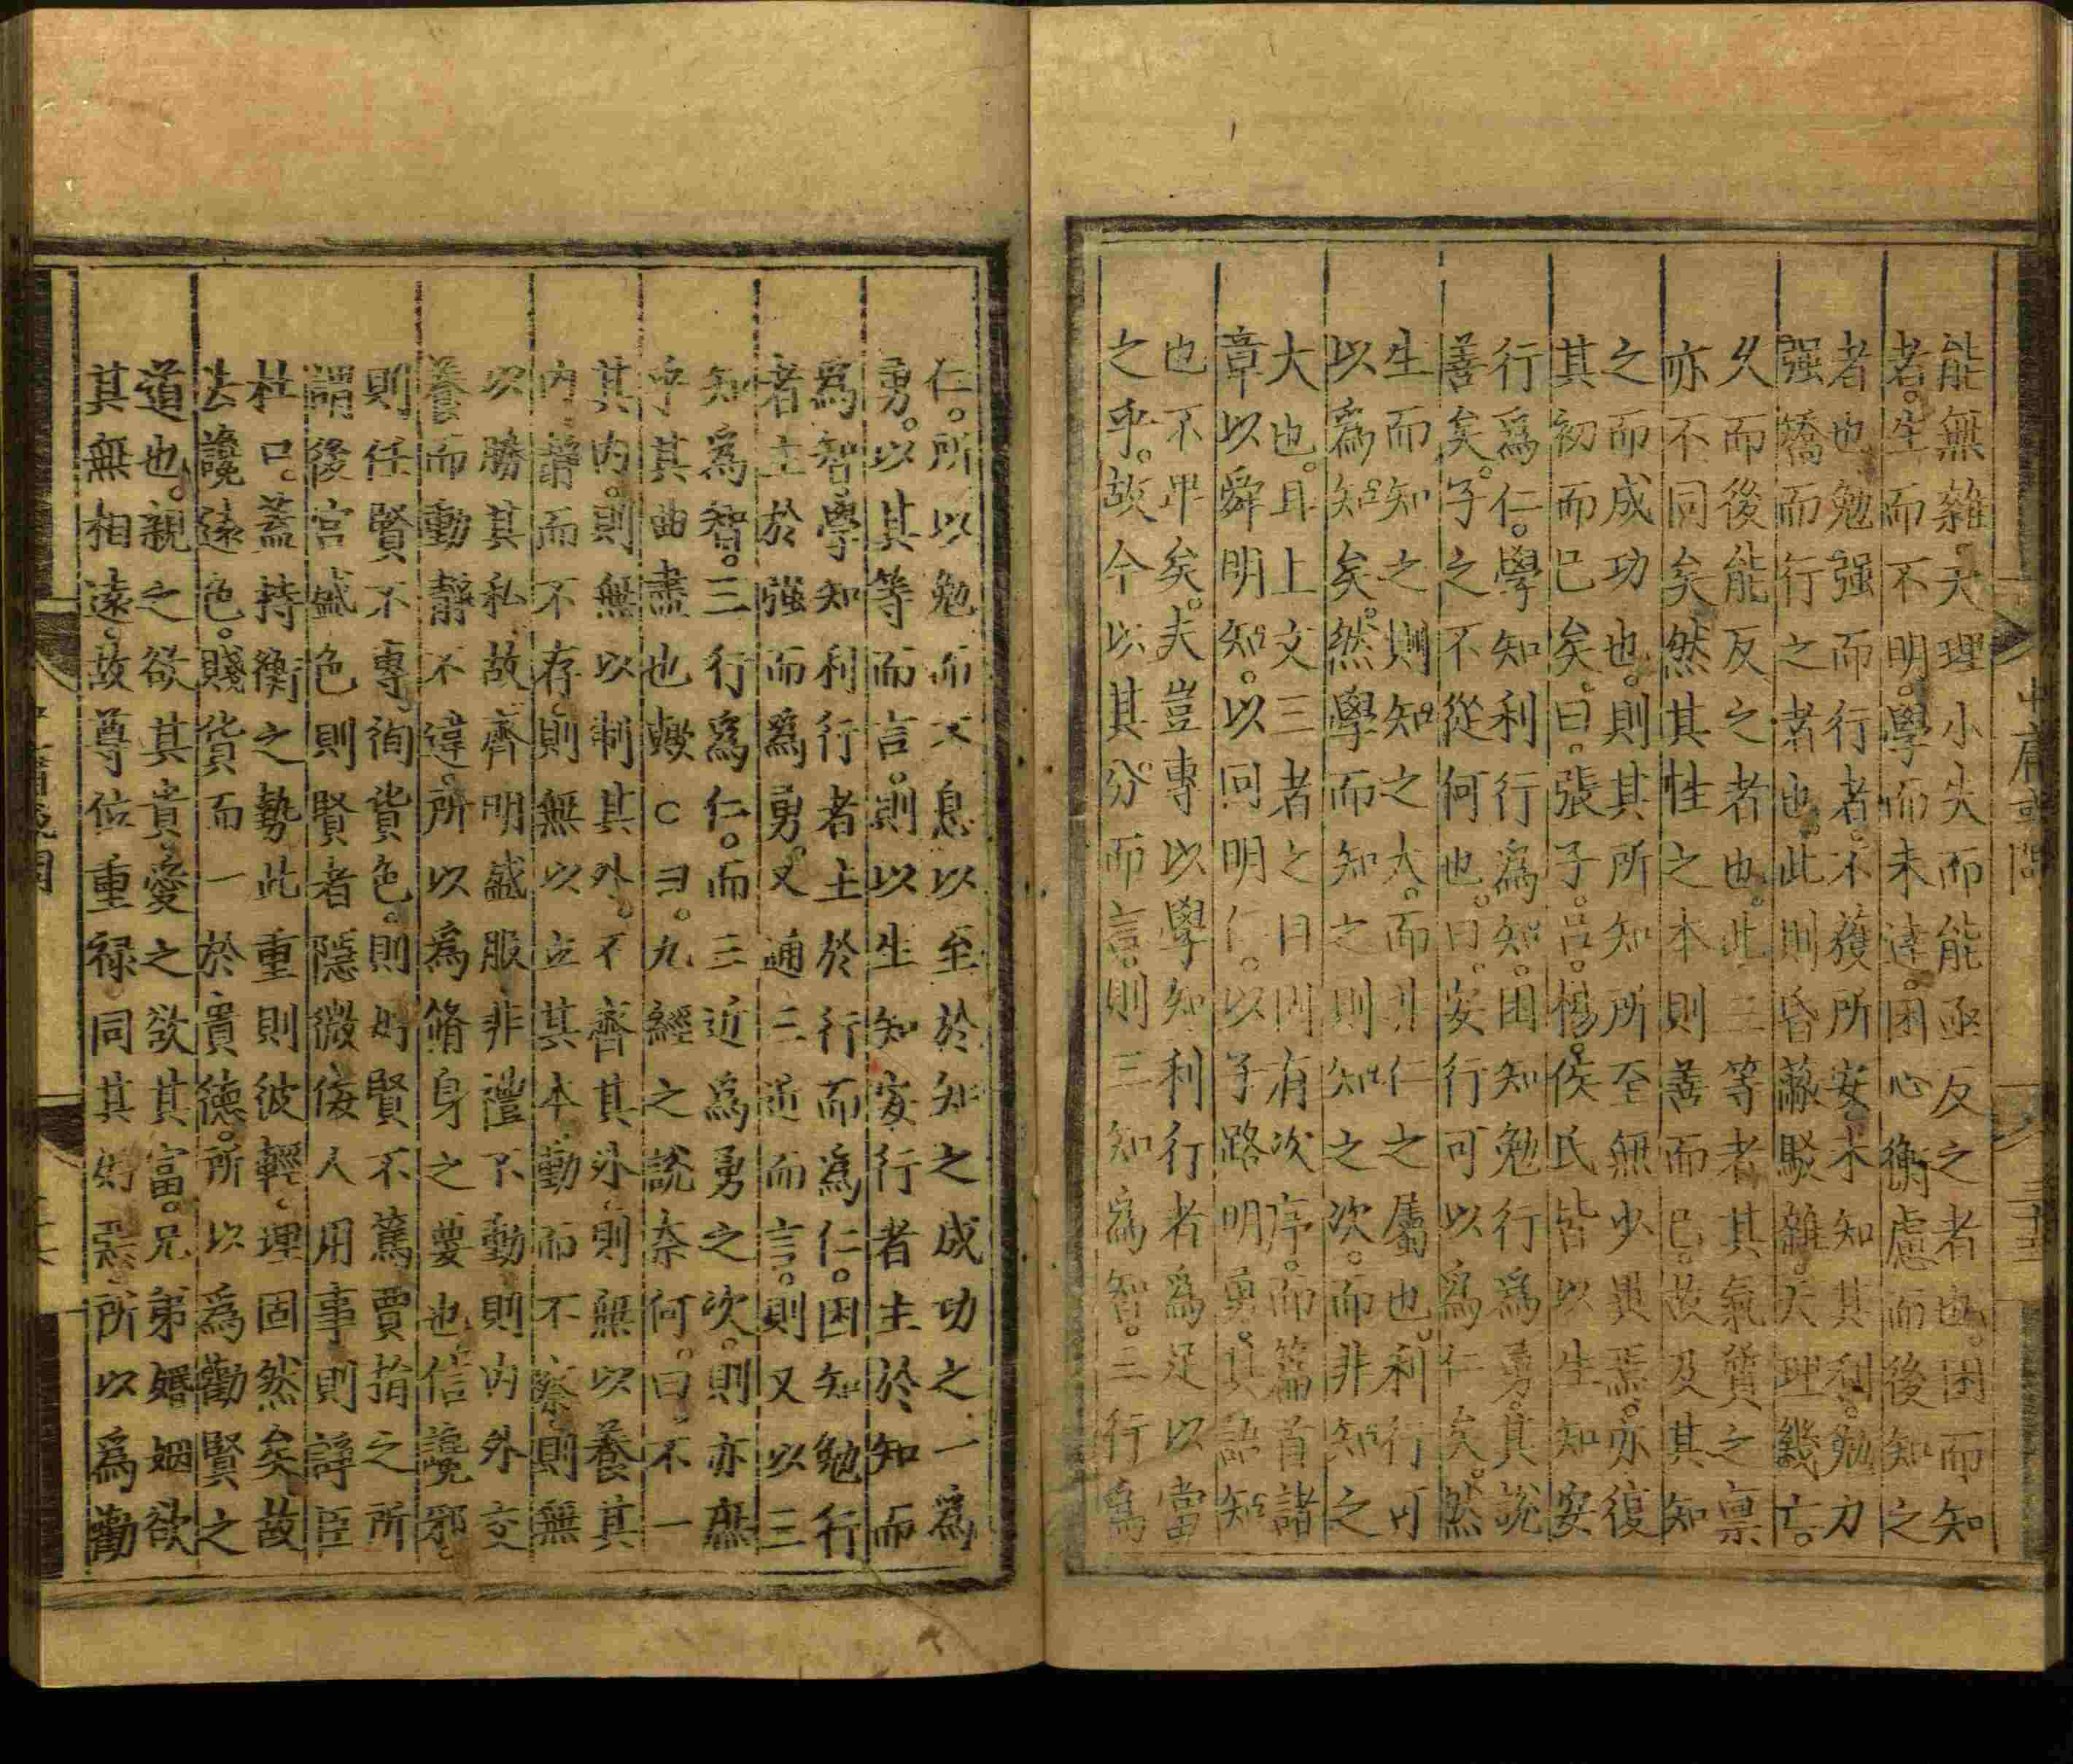 能無雜天理小失而能亟反之者也困而知
者生而不明學而未達困心衡慮而後知之
者也勉强而行者不獲所安未知其利勉力
强矯而行之者也此則昏蔽駁雜天理幾亡
久而後能反之者也此三等者其氣質之稟
亦不同矣然其性之本則善而已故及其知
之而成功也則其所知所至無少異焉亦復
其初而已矣曰張子呂楊侯氏皆以生知安
行爲仁學知利行爲知困知勉行爲勇其說
善矣子之不從何也曰安行可以爲仁矣然
生而知之則知之大而非仁之屬也利行可
以爲知矣然學而知之則知之次而非知之
大也且上文三者之目固有次序而篇首諸
章以舜明知以回明仁以子路明勇其語知
也不卑矣夫豈專以學知利行者爲足以當
之乎故今以其分而言則三知爲智三行爲
中庸或問
三十五
仁所以勉而不息以至於知之成功之一爲
勇以其等而言則以生知安行者主於知而
爲智學知利行者主於行而爲仁困知勉行
者主於强而爲勇又通三近而言則又以三
知爲智三行爲仁而三近爲勇之次則亦庶
乎其曲盡也歟 曰九經之說奈何曰不一
其內則無以制其外不齊其外則無以養其
內靜而不存則無以立其本動而不察則無
以勝其私故齊明盛服非禮不動則內外交
養而動靜不違所以爲脩身之要也信讒邪
則任賢不專徇貨色則好賢不篤賈捐之所
謂後宮盛色則賢者隱微佞人用事則諍臣
杜口蓋持衡之勢此重則彼輕理固然矣故
去讒遠色賤貨而一於貴德所以爲勸賢之
道也親之欲其貴愛之欲其富兄弟婚姻欲
其無相遠故尊位重祿同其好惡所以爲勸